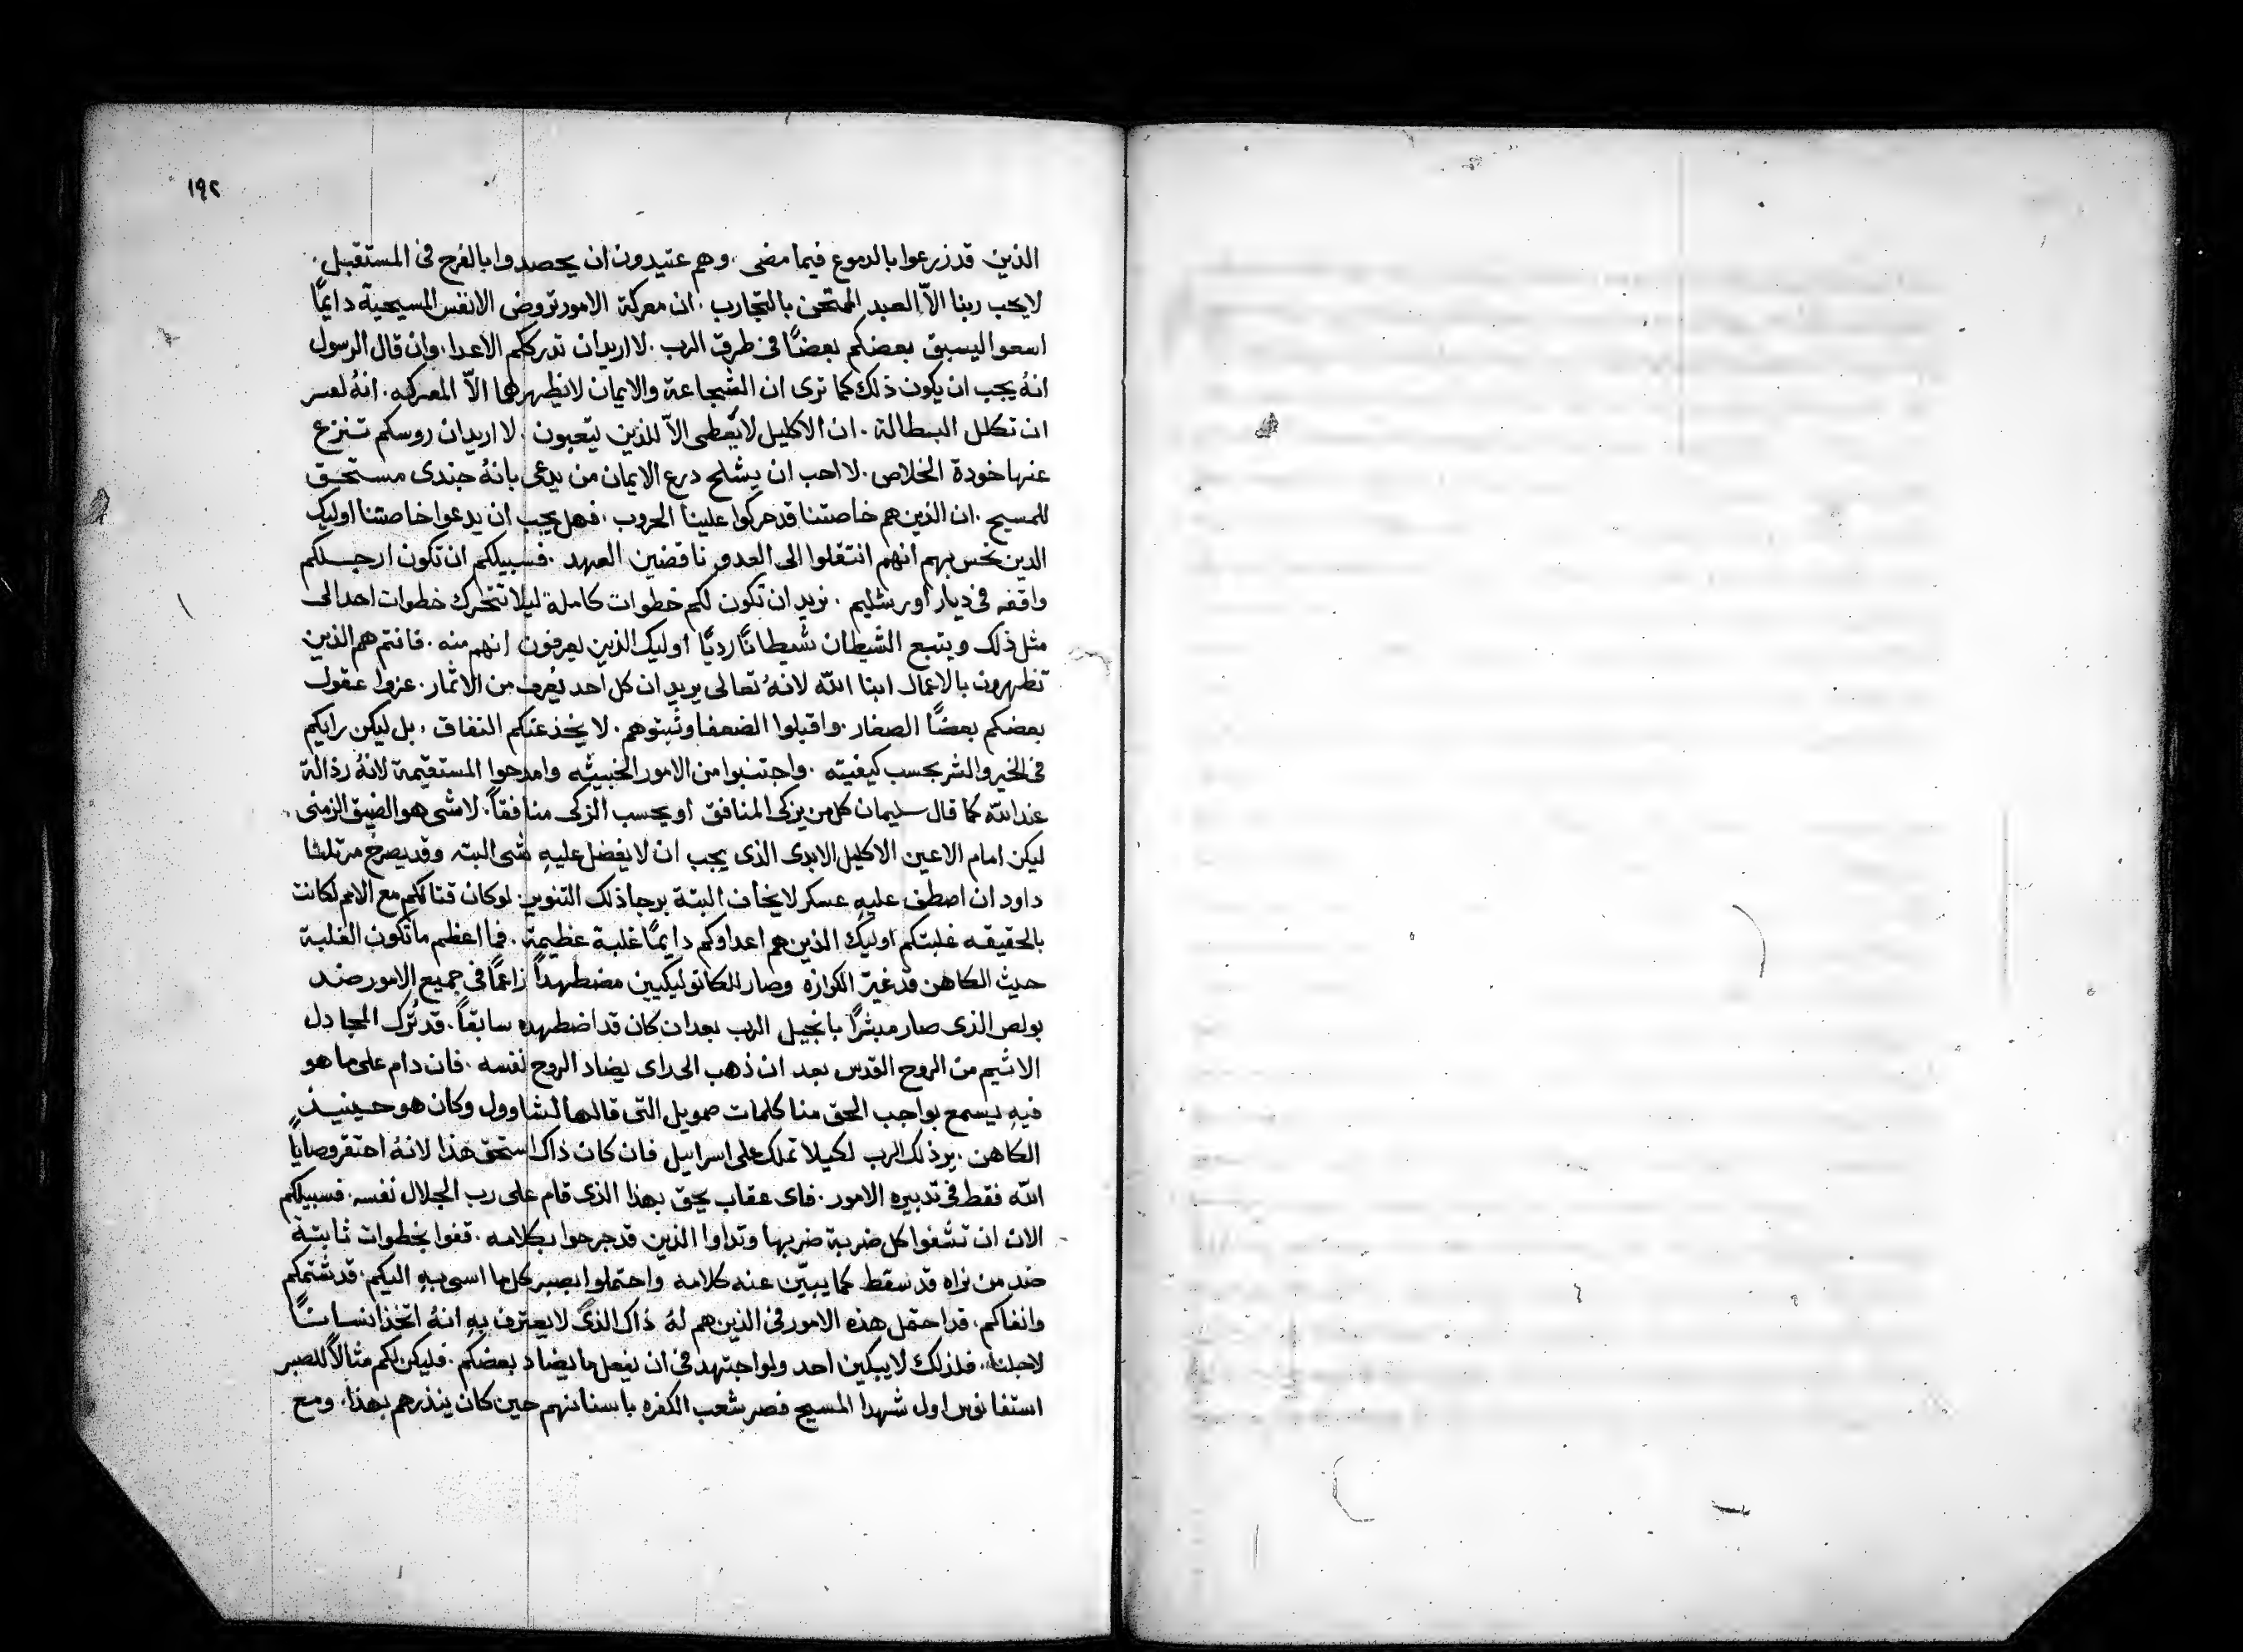 ١٩٢
الذين قد زرعوا بالدموع فيما مضى . وهم عتيدون ان يحصدوا بالفرح فى المستقبل .
لا يحب ربنا الاّ العبد الممتحن بالتجارب . ان معركة الامور تروض الانفس المسيحية دايمًا
اسعوا ليسبق بعضكم بعضًا فى طرق الرب . لا اريد ان تدرككم الاعدا . وان قال الرسول
انهُ يجب ان يكون ذلك كما ترى ان الشجاعة والايمان لا يظهرهما الاّ المعركه . انهُ لعسر
ان تكلل البطالة . ان الاكليل لا يُعطى الاّ للذين يتعبون . لا اريد ان روسكم تنزع
عنها خودة الخلاص . لا احب ان يشلح درع الايمان من يدعى بانهُ جندى مستحق
للمسيح . ان الذين هم خاصتنا قد حركوا علينا الحروب . فهل يجب ان يدعوا خاصتنا اوليك
الدين نحس بهم انهم انتقلوا الى العدو ناقضين العهد . فسبيلكم ان تكون ارجلكم
واقفه فى ديار اورشليم . نريد ان تكون لكم خطوات كاملة ليلا تتحرك خطوات احد الى
مثل ذلك ويتبع الشيطان شيطانًا رديًا اوليك الذين يعرفون انهم منه . فانتم هم الذين
تظهرون بالاعمال ابنا الله لانهُ تعالى يريد ان كل احد يُعرف من الاثمار . عزوا عقول
بعضكم بعضًا الصغار . واقبلوا الضعفا وثبتوهم . لا يخدعنكم النفاق . بل ليكن رايكم
فى الخير والشر بحسب كيفيته . واجتنبوا من الامور الخبيثه وامدحوا المستقيمة لانهُ رذالة
عند الله كما قال سليمان كل من يزكى المنافق او يحسب الزكى منافقاً . لا شى هو الضيق الزمنى .
ليكن امام الاعين الاكليل الابدى الذى يجب ان لا يفضل عليهِ شى البته وقد يصرخ مرتلنا
داود ان اصطف عليهِ عسكر لا يخاف البتة برجا ذلك التنوين . لو كان قتالكم مع الامم لكانت
بالحقيقه غلبتكم اوليك الذين هم اعداوكم دايمًا غلبة عظيمة . فما اعظم ما تكون الغلبة
حيث الكاهن قد غيّر الكرازه وصار للكاتوليكيين مضطهداً زاعمًا فى جميع الامور ضد
بولص الذى صار مبشرًا بانجيل الرب بعد ان كان قد اضطهده سابقاً . قد تُرك المجادل
الاثيم من الروح القدس بعد ان ذهب الى راى يضاد الروح نفسه . فان دام على ما هو
فيهِ يسمع بواجب الحق منا كلمات صمويل التى قالها لشاوول وكان هو حينيذٍ
الكاهن . يرذلك الرب لكيلا تملك على اسراييل فان كان ذاك استحق هذا لانهُ احتقر وصايا
الله فقط فى تدبيره الامور . فاى عقاب يحق بهذا الذى قام على رب الجلال نفسه . فسبيلكم
الان ان تشفوا كل ضربة ضربها وتداوا الذين قد جرحوا بكلامه . قفوا بخطوات ثابتة
ضد من نراه قد سقط كما يبيّن عنه كلامه واحتملوا بصبر كل ما اسى بهِ اليكم . قد شتمكم
وانفاكم . قد احتمل هذه الامور فى الذين هم لهُ ذاك الذى لا يعترف بهِ انهُ اتخذ انسانًا
لاجلنا . فلذلك لا يبكين احد ولو اجتهد فى ان يفعل ما يضاد بعضكم . فليكن لكم مثالاً للصبر
استفانوس اول شهدا المسيح فصر شعب الكفره باسنانهم حين كان ينذرهم بهذا . ومع